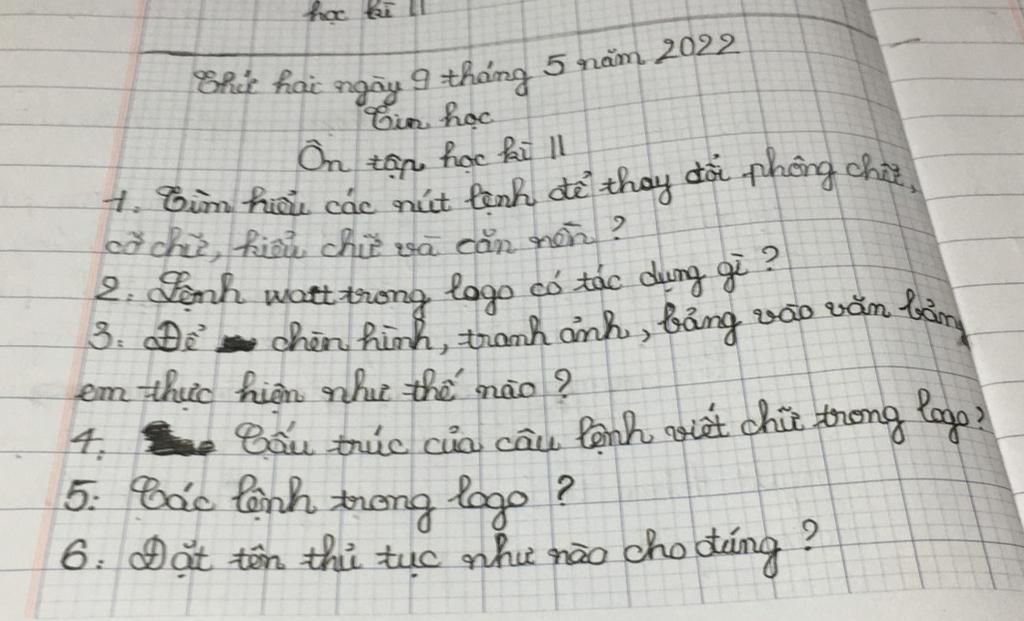 học kì II
Thứ hai ngày 9 tháng 5 năm 2022
Tin học
Ôn tập học kì II
1. Tìm hiểu các nút lệnh để thay đổi phông chữ,
cỡ chữ, kiểu chữ và căn nề?
2. Lệnh wait trong logo có tác dụng gì?
3. Để chèn hình, tranh ảnh, bảng vào văn bản,
em thực hiện như thế nào?
4. Cấu trúc của câu lệnh viết chữ trong logo?
5. Các lệnh trong logo?
6. Đặt tên thủ tục như nào cho đúng?